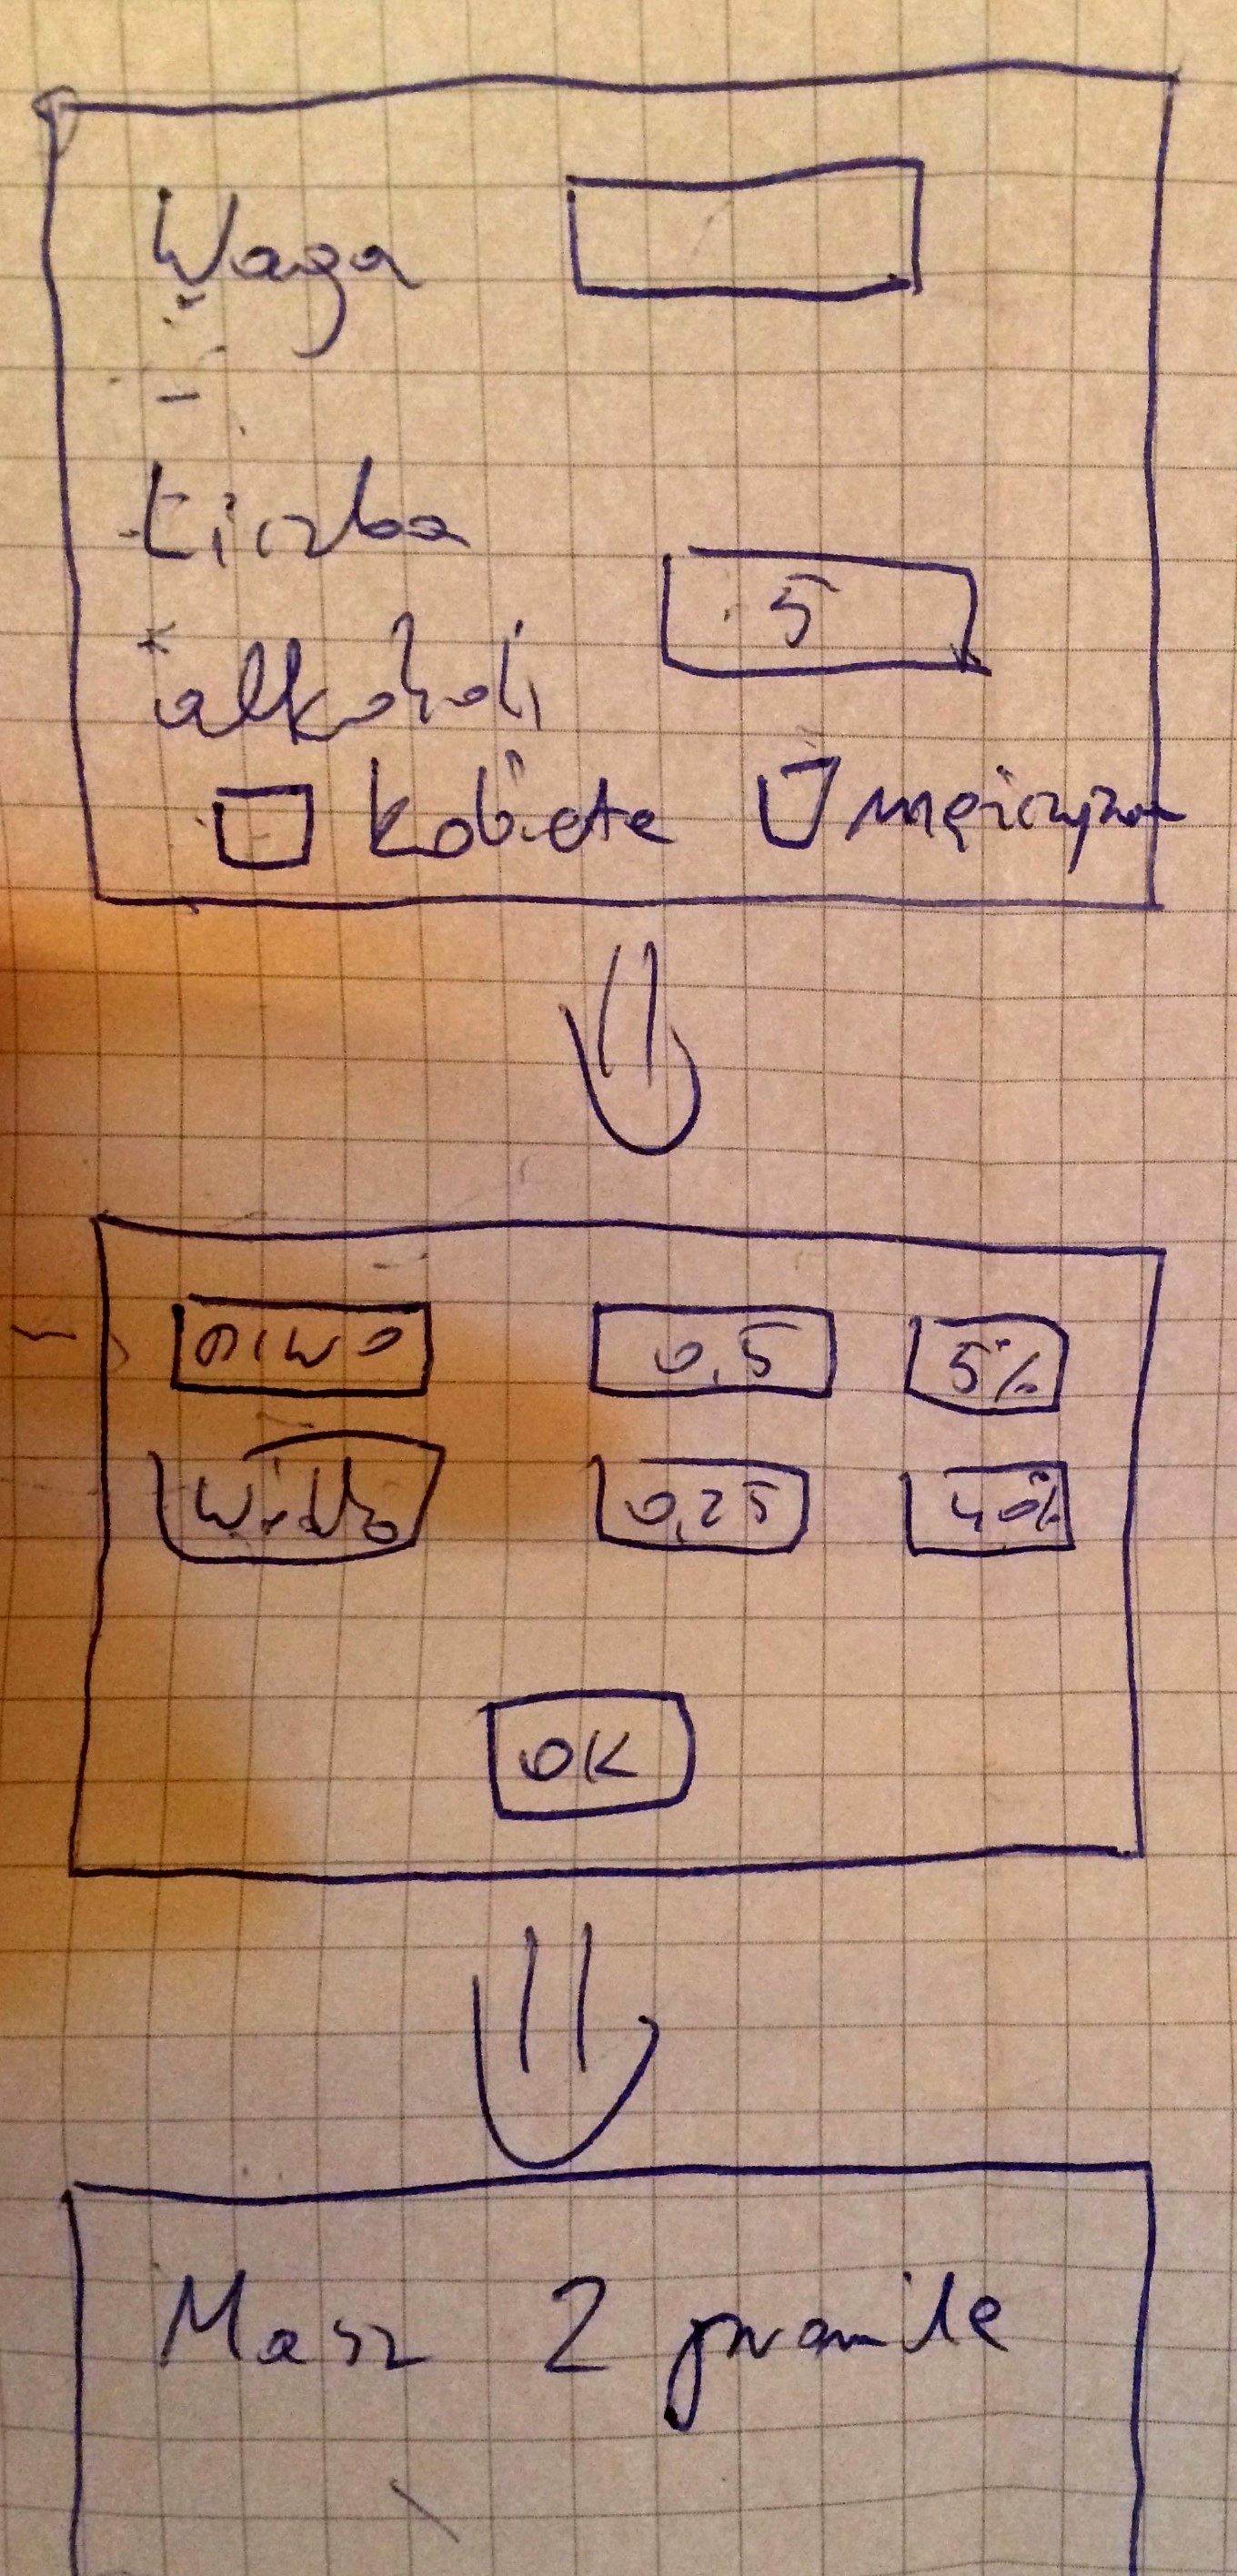 Waga
Liczba
alkoholi 5
kobieta mężczyzna
piwo 0,5 5%
0,25 40%
OK
Masz 2 promile